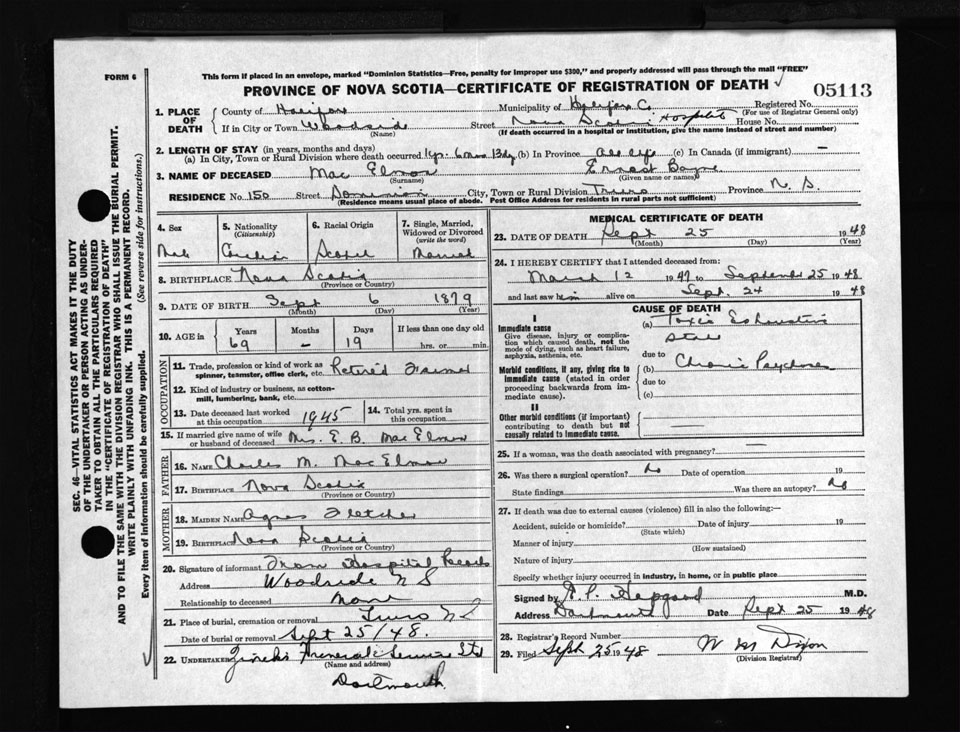 FORM 6
This form if placed in an envelope, marked "Dominion Statistics—Free, penalty for improper use $300," and properly addressed will pass through the mail "FREE"
PROVINCE OF NOVA SCOTIA—CERTIFICATE OF REGISTRATION OF DEATH
05113
1. PLACE OF DEATH
County of Halifax Municipality of Halifax C. Registered No.
(For use of Registrar General only)
If in City or Town Woodside Street Nova Scotia Hospital House No.
(Name) (If death occurred in a hospital or institution, give the name instead of street and number)
2. LENGTH OF STAY (in years, months and days)
(a) In City, Town or Rural Division where death occurred 1 yr. 6 mos 13 dy. (b) In Province All life (c) In Canada (if immigrant) —
3. NAME OF DECEASED Mac Elmon Ernest
(Surname) (Given name or names)
RESIDENCE No. 150 Street Dominion City, Town or Rural Division Truro Province N. S.
(Residence means usual place of abode. Post Office Address for residents in rural parts not sufficient)
4. Sex
Male
5. Nationality
(Citizenship)
Canadian
6. Racial Origin
Scotch
7. Single, Married, Widowed or Divorced
(write the word)
Married
8. BIRTHPLACE Nova Scotia
(Province or Country)
9. DATE OF BIRTH Sept 6 1879
(Month) (Day) (Year)
10. AGE in
Years Months Days If less than one day old
69 — 19 hrs. or min.
OCCUPATION
11. Trade, profession or kind of work as spinner, teamster, office clerk, etc. Retired Farmer
12. Kind of industry or business, as cotton-mill, lumbering, bank, etc.
13. Date deceased last worked at this occupation 1945
14. Total yrs. spent in this occupation
15. If married give name of wife or husband of deceased Mrs. E. B. Mac Elmon
FATHER
16. NAME Charles M. Mac Elmon
17. BIRTHPLACE Nova Scotia
(Province or Country)
MOTHER
18. MAIDEN NAME Agnes Fletcher
19. BIRTHPLACE Nova Scotia
(Province or Country)
20. Signature of informant From Hospital Records
Address Woodside N S
Relationship to deceased None
21. Place of burial, cremation or removal Truro N S
Date of burial or removal Sept 25/48.
22. UNDERTAKER Funeral Service Ltd
(Name and address)
Dartmouth
MEDICAL CERTIFICATE OF DEATH
23. DATE OF DEATH Sept 25 1948
(Month) (Day) (Year)
24. I HEREBY CERTIFY that I attended deceased from:
March 12 1947 to September 25 1948
and last saw him alive on Sept. 24 1948
CAUSE OF DEATH
I
Immediate cause
Give disease, injury or complication which caused death, not the mode of dying, such as heart failure, asphyxia, asthenia, etc.
(a) Toxic Exhaustive State
due to
Morbid conditions, if any, giving rise to immediate cause (stated in order proceeding backwards from immediate cause).
(b) Chronic Psychoses
due to
(c)
II
Other morbid conditions (if important) contributing to death but not causally related to immediate cause.
25. If a woman, was the death associated with pregnancy? —
26. Was there a surgical operation? No Date of operation 19
State findings Was there an autopsy? No
27. If death was due to external causes (violence) fill in also the following:—
Accident, suicide or homicide? Date of injury 19
(State which)
Manner of injury
(How sustained)
Nature of injury
Specify whether injury occurred in industry, in home, or in public place
Signed by Hapgood M.D.
Address Dartmouth Date Sept 25 1948
28. Registrar's Record Number
29. Filed Sept 25 1948 W M Dixon
(Division Registrar)
SEC. 46—VITAL STATISTICS ACT MAKES IT THE DUTY
OF THE UNDERTAKER OR PERSON ACTING AS UNDER-
TAKER TO OBTAIN ALL THE PARTICULARS REQUIRED
IN THE "CERTIFICATE OF REGISTRATION OF DEATH"
AND TO FILE THE SAME WITH THE DIVISION REGISTRAR WHO SHALL ISSUE THE BURIAL PERMIT.
WRITE PLAINLY WITH UNFADING INK. THIS IS A PERMANENT RECORD.
Every item of information should be carefully supplied. (See reverse side for instructions.)